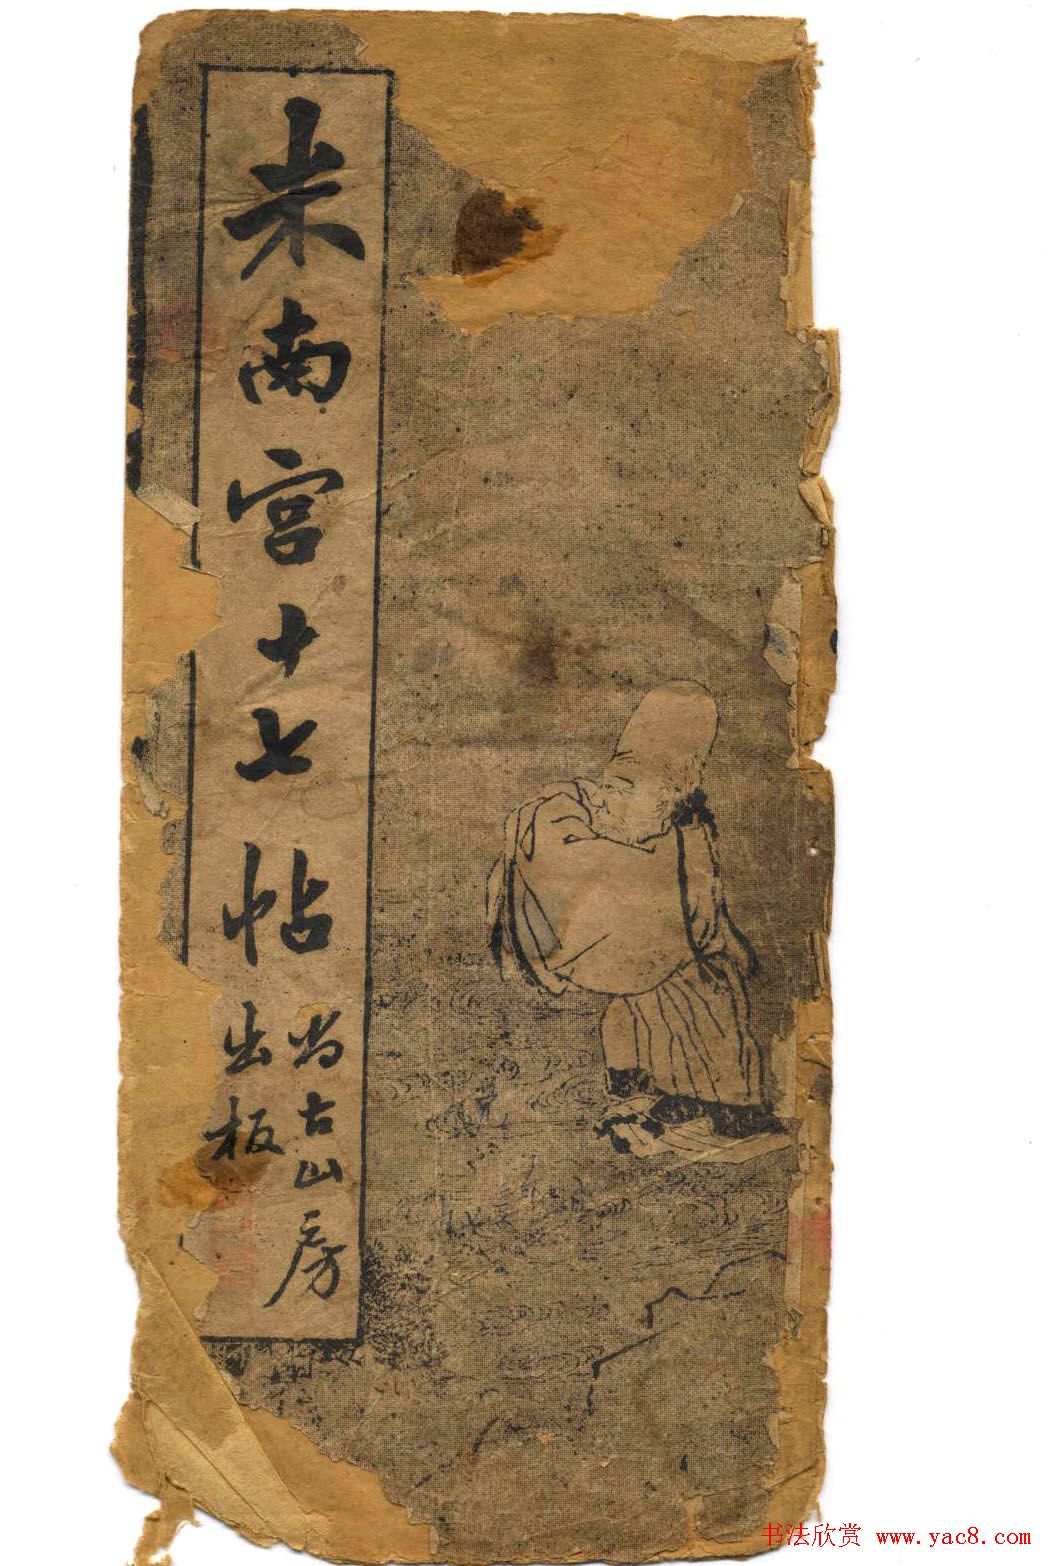 米南宫十七帖
尚古山房
出板
书法欣赏 www.yac8.com